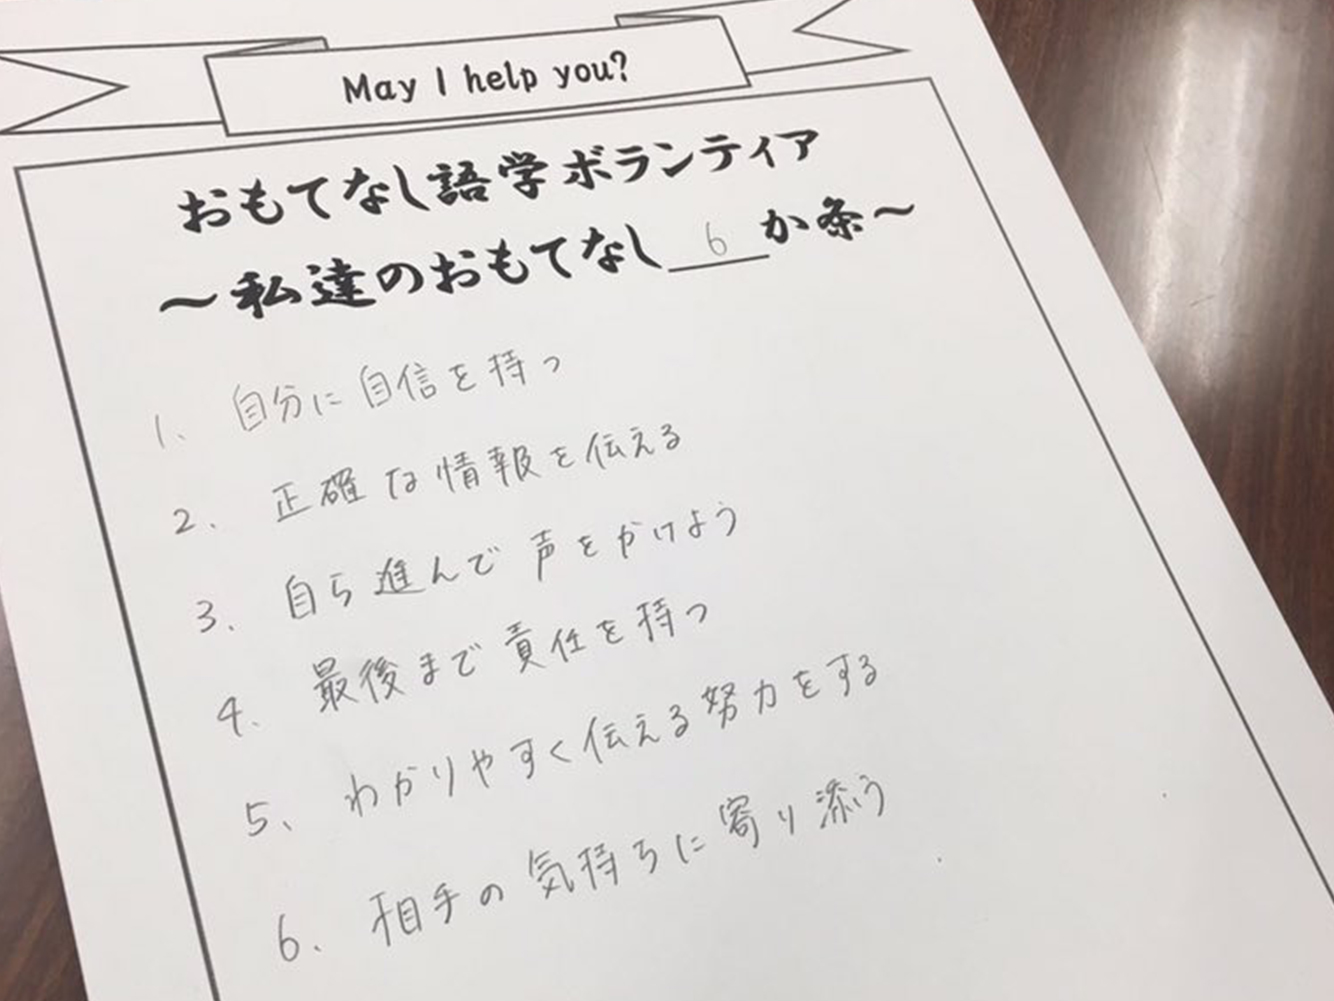 May I help you?
おもてなし語学ボランティア
～私達のおもてなし 6 か条～
1. 自分に自信を持つ
2. 正確な情報を伝える
3. 自ら進んで声をかけよう
4. 最後まで責任を持つ
5. わかりやすく伝える努力をする
6. 相手の気持ちに寄り添う